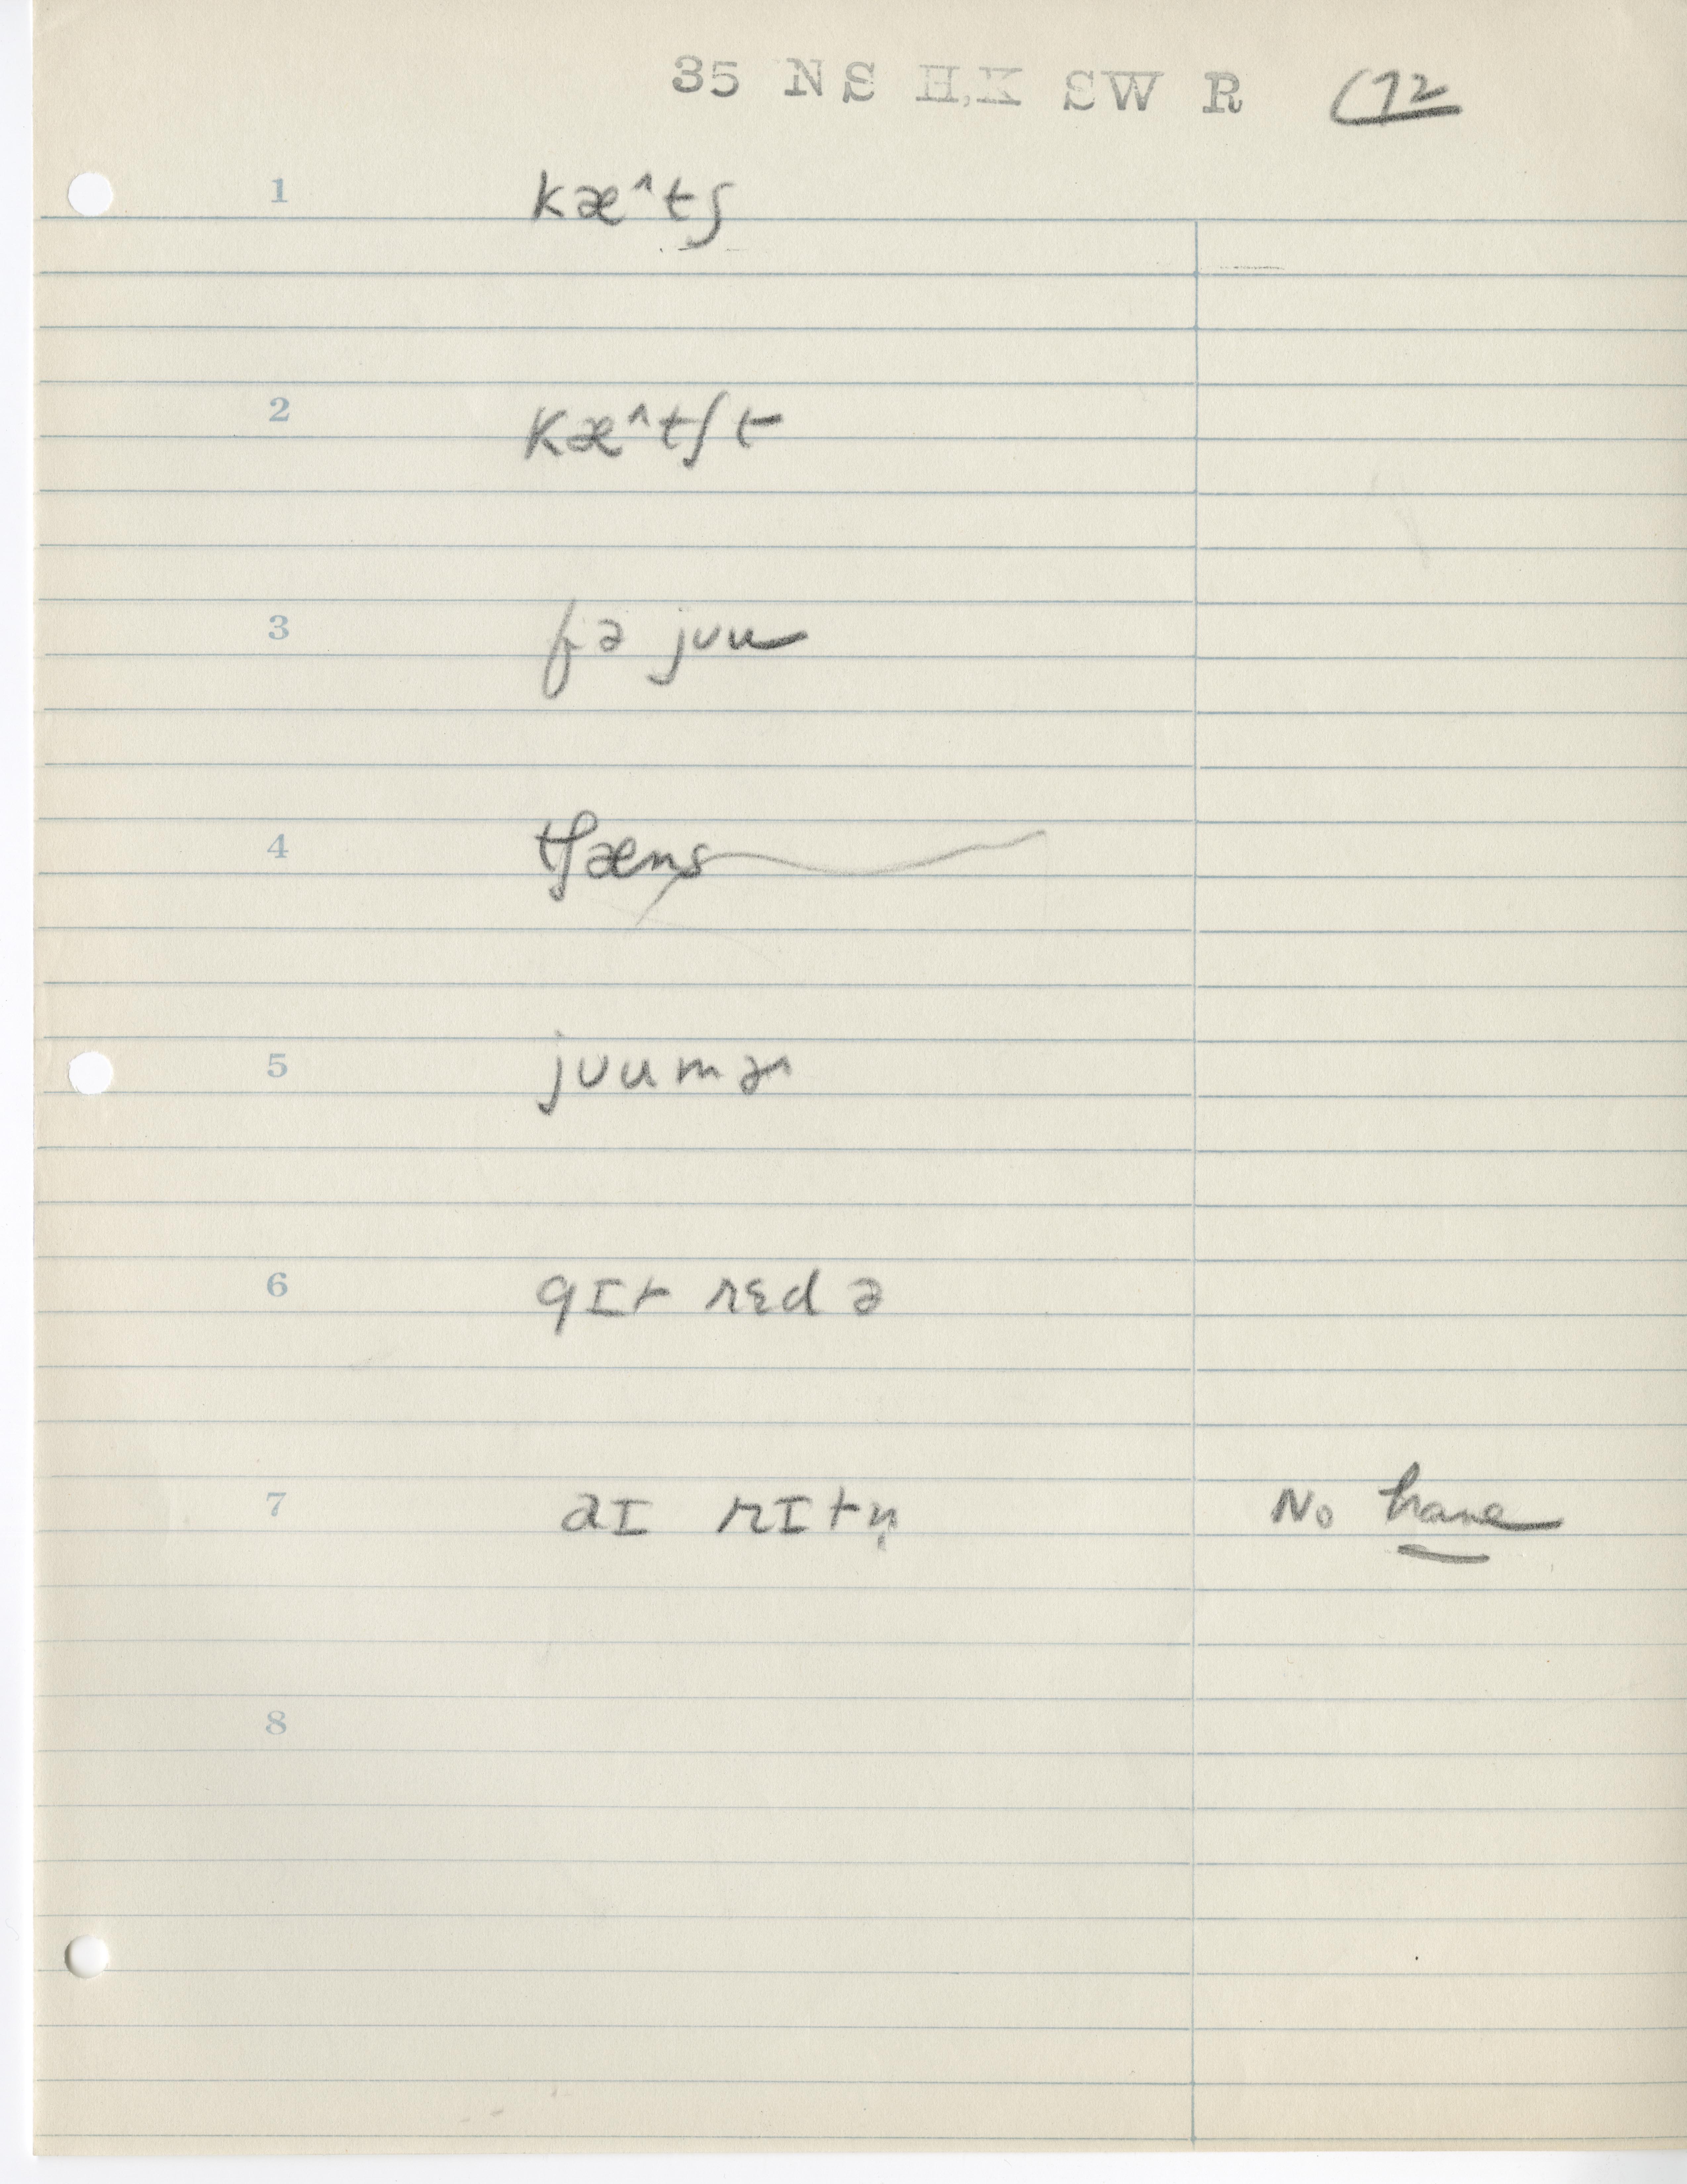 35 NS H,K SW R (72
1 kæ^tʃ
2 kæ^tʃt
3 fə juu
4 tʃæns
5 jʊumɚ
6 gɪt rɛd ə
7 aɪ rɪtn̩ No have
8